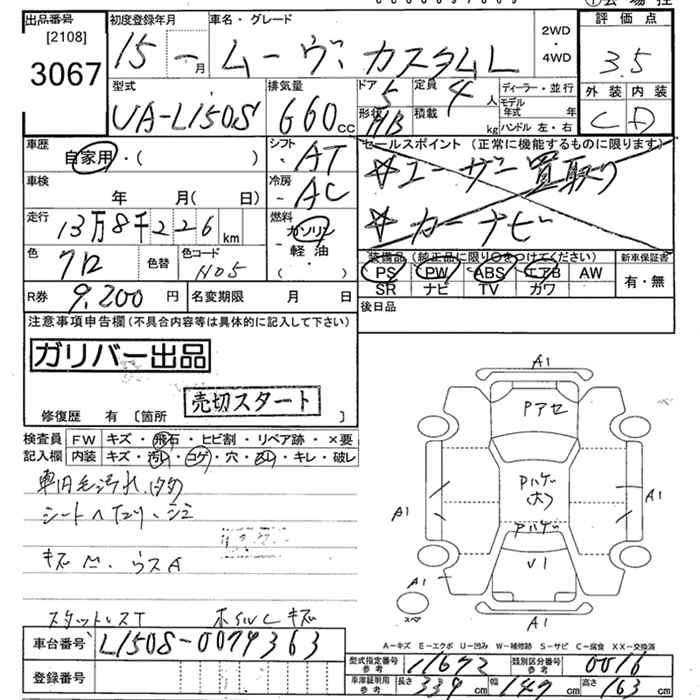 出品番号 初度登録年月 車名・グレード 評価点
[2108] 15年 一月 ムーヴ カスタムL 2WD・4WD 3.5
3067
外装 内装
型式 排気量 ドア 5 定員 4人 ディーラー・並行
UA-L150S 660cc 形状 HB 積載 kg モデル年式 年 C D
ハンドル 左・右
車歴 シフト セールスポイント (正常に機能するものに限ります)
自家用・( ) AT ☆ユーザー買取り
車検 冷房
年 月( 日) AC ☆カーナビ
走行 燃料
13万8千226km ガソリン
軽油
・( )
色 色替 色コード 装備品 (純正品に限り○をつけてください) 新車保証書
クロ H05 PS PW ABS エアB AW 有・無
SR ナビ TV カワ
R券 9,200円 名変期限 月 日 後日品
注意事項申告欄(不具合内容等は具体的に記入して下さい)
ガリバー出品
売切スタート
修復歴 有 〔箇所 〕
検査員 FW キズ・飛石・ヒビ割・リペア跡・×要
記入欄 内装 キズ・汚レ・コゲ・穴・スレ・キレ・破レ
車内毛汚れ多
シートヘタリ・シミ
キズ ウスA
スタットレスT ホイルCキズ
A1
Pアセ
Pハゲ
(大)
Pハゲ
V1
A1
A1
A1
スペア
A1
A-キズ E-エクボ U-凹み W-補修跡 S-サビ C-腐食 XX-交換済
車台番号 L150S-0079363
型式指定番号 参考 11692 類別区分番号 参考 0016
登録番号
車庫証明用 参考 長さ 339cm 幅 147cm 高さ 163cm